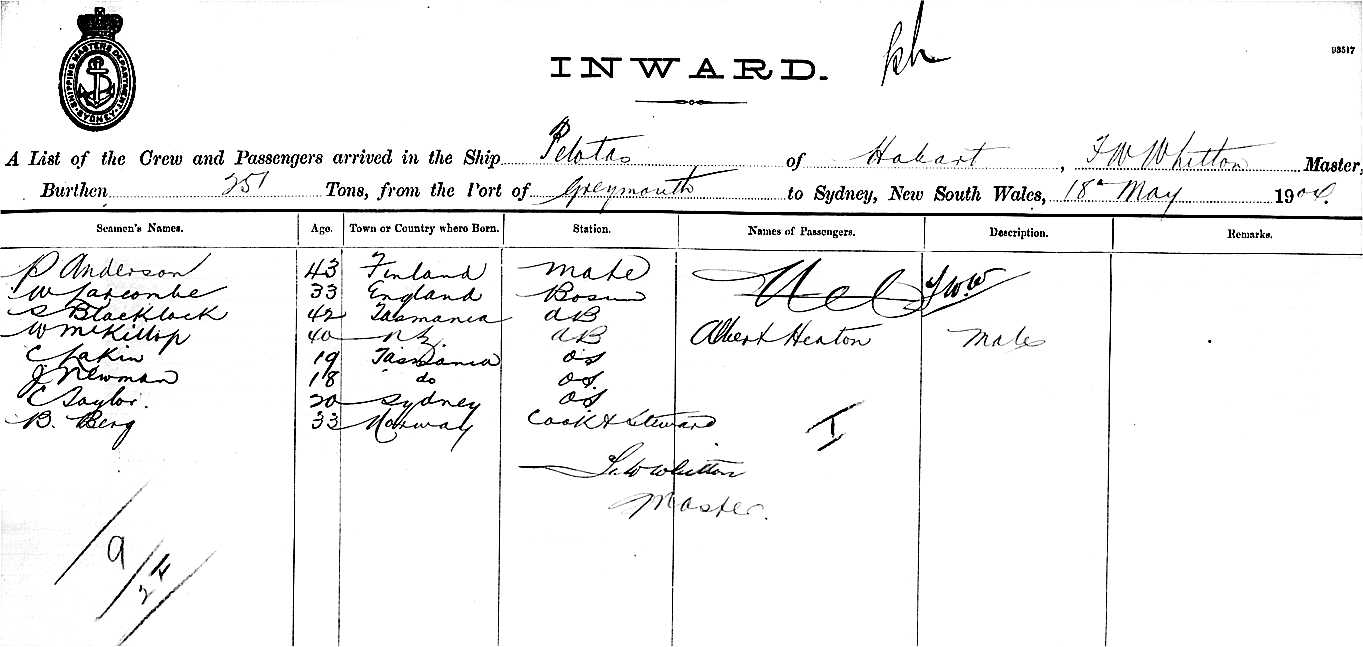 kh
93517
SHIPPING MASTERS DEPARTMENT SYDNEY
INWARD.
A List of the Crew and Passengers arrived in the Ship Pelotas of Hobart, F W Whitton Master,
Burthen 251 Tons, from the Port of Greymouth to Sydney, New South Wales, 18th May 1904.
Seamen's Names. Age. Town or Country where Born. Station. Names of Passengers. Description. Remarks.
P Anderson 43 Finland Mate
W Larcombe 33 England Bosun Nil F.W.W
S Blacklock 42 Tasmania AB
W McKillop 40 NZ. AB Albert Heaton Males
C Lakin 19 Tasmania OS
J Newman 18 do OS.
C Taylor. 20 Sydney OS.
B. Berg 33 Norway Cook & Steward I
F. W Whitton
Master.
9
24